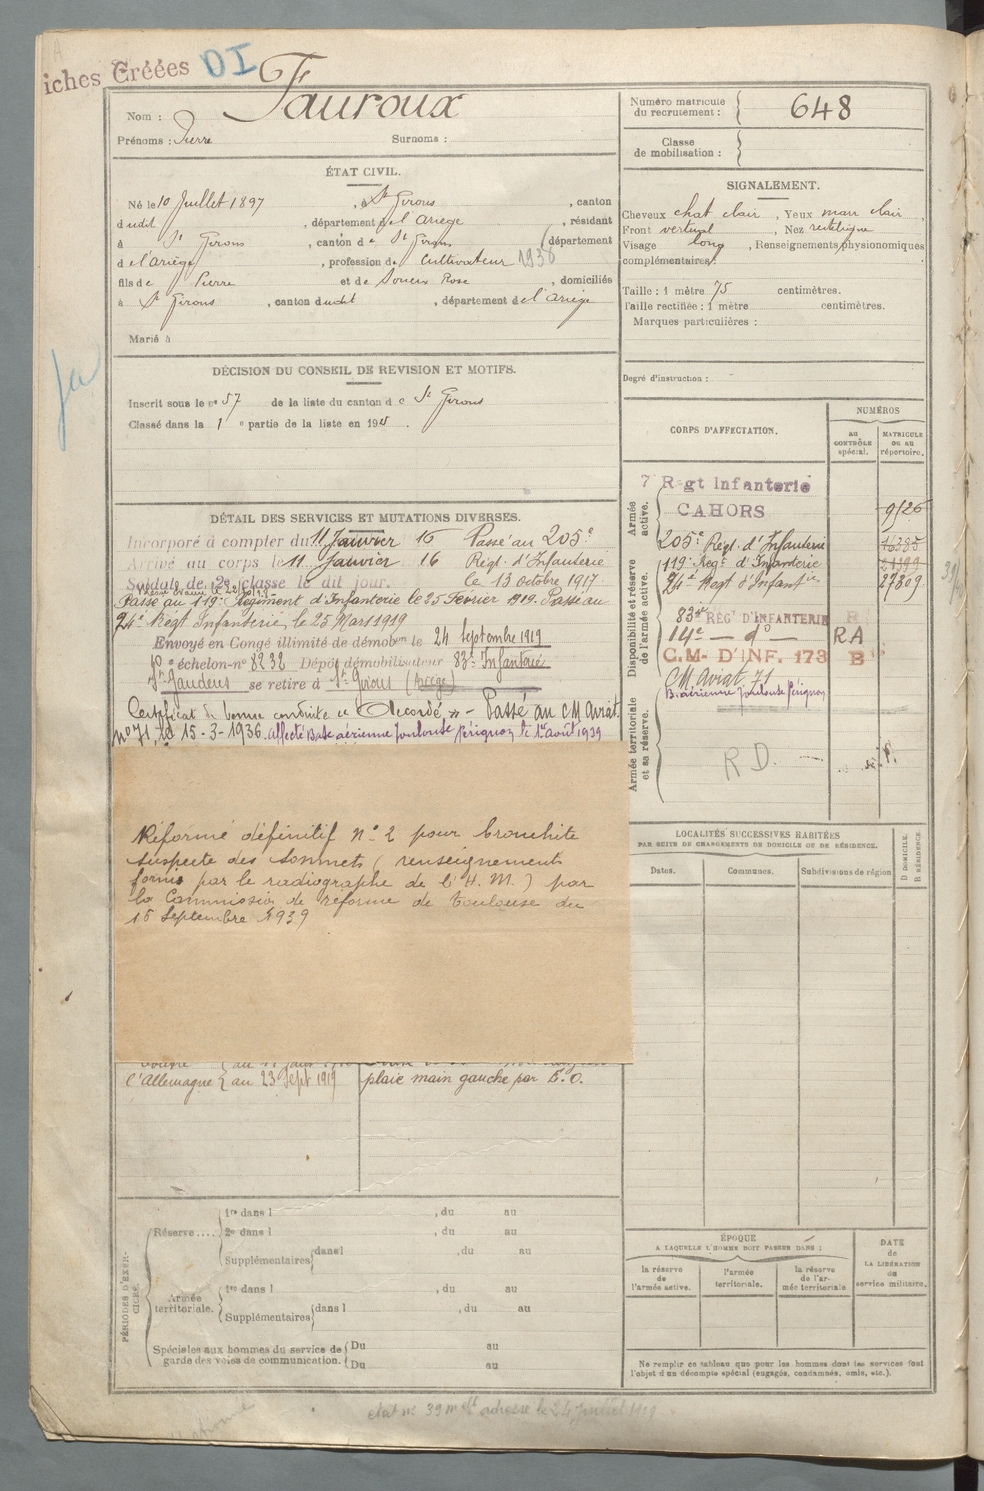 iches Créées DI
Nom : Fauroux
Prénoms : Pierre Surnoms :
ÉTAT CIVIL.
Né le 10 Juillet 1897, à St Girons, canton
dudit, département de l'Ariège, résidant
à St Girons, canton de St Girons, département
de l'ariège, profession de Cultivateur 1936
fils de Pierre et de Soueix Rose, domiciliés
à St Girons, canton dudit, département de l'ariège
Marié à
ja
DÉCISION DU CONSEIL DE REVISION ET MOTIFS.
Inscrit sous le n° 57 de la liste du canton de St Girons
Classé dans la 1e partie de la liste en 19
DÉTAIL DES SERVICES ET MUTATIONS DIVERSES.
Incorporé à compter du 11 Janvier 16 Passé au 205e
Arrivé au corps le 11 Janvier 16 Régt. d'Infanterie
Soldat de 2e classe le dit jour. le 13 octobre 1917
Passé au 119e Régiment d'Infanterie le 25 Février 1919. Passé au
24e Régt Infanterie, le 25 Mars 1919
Envoyé en Congé illimité de démobon le 24 Septembre 1919
échelon-n° 8232 Dépôt démobilisateur 83e Infanterie
St Gaudens se retire à St Girons (Ariège)
Certificat de bonne conduite "Accordé" - Passé au CM Aviat.
n° 71, le 15-3-1936. Affecté Base aérienne Toulouse Pérignon le 1er août 1939
Réformé définitif n° 2 pour bronchite
suspecte des sommets (renseignements
fornis par le radiographe de l'H. M.) par
la Commission de réforme de Toulouse du
15 Septembre 1939
l'Allemagne au 23 Sept 1919 plaie main gauche par E. O.
PÉRIODES D'EXERCICE.
Réserve.... 1re dans l , du au
2e dans l , du au
Supplémentaires dans l , du au
Armée territoriale. 1re dans l , du au
Supplémentaires dans l , du au
Spéciales aux hommes du service de garde des voies de communication. Du au
Du au
Numéro matricule du recrutement : 648
Classe de mobilisation :
SIGNALEMENT.
Cheveux chat clair, Yeux marr clair,
Front vertical, Nez rectiligne
Visage long, Renseignements physionomiques
complémentaires :
Taille : 1 mètre 75 centimètres.
Taille rectifiée : 1 mètre centimètres.
Marques particulières :
Degré d'instruction :
CORPS D'AFFECTATION.
NUMÉROS
AU CONTRÔLE spécial.
MATRICULE OU AU répertoire.
Armée active.
7 Regt Infanterie
CAHORS 9126
Disponibilité et réserve de l'armée active.
205e Régt. d'Infanterie 16385
119e Regt d'Infanterie
24e Regt d'Infantie 27309
83e RÉGT D'INFANTERIE R
14e — do — RA
C.M. D'INF. 173 B
CM Aviat 71
B. aérienne Toulouse Pérignon
Armée territoriale et sa réserve.
R D.
LOCALITÉS SUCCESSIVES HABITÉES
PAR SUITE DE CHANGEMENTS DE DOMICILE OU DE RÉSIDENCE.
Dates. Communes. Subdivisions de région
D DOMICILE.
R RÉSIDENCE.
ÉPOQUE
A LAQUELLE L'HOMME DOIT PASSER DANS :
la réserve de l'armée active. l'armée territoriale. la réserve de l'armée territoriale
DATE de LA LIBÉRATION du service militaire.
Ne remplir ce tableau que pour les hommes dont les services font
l'objet d'un décompte spécial (engagés, condamnés, omis, etc.).